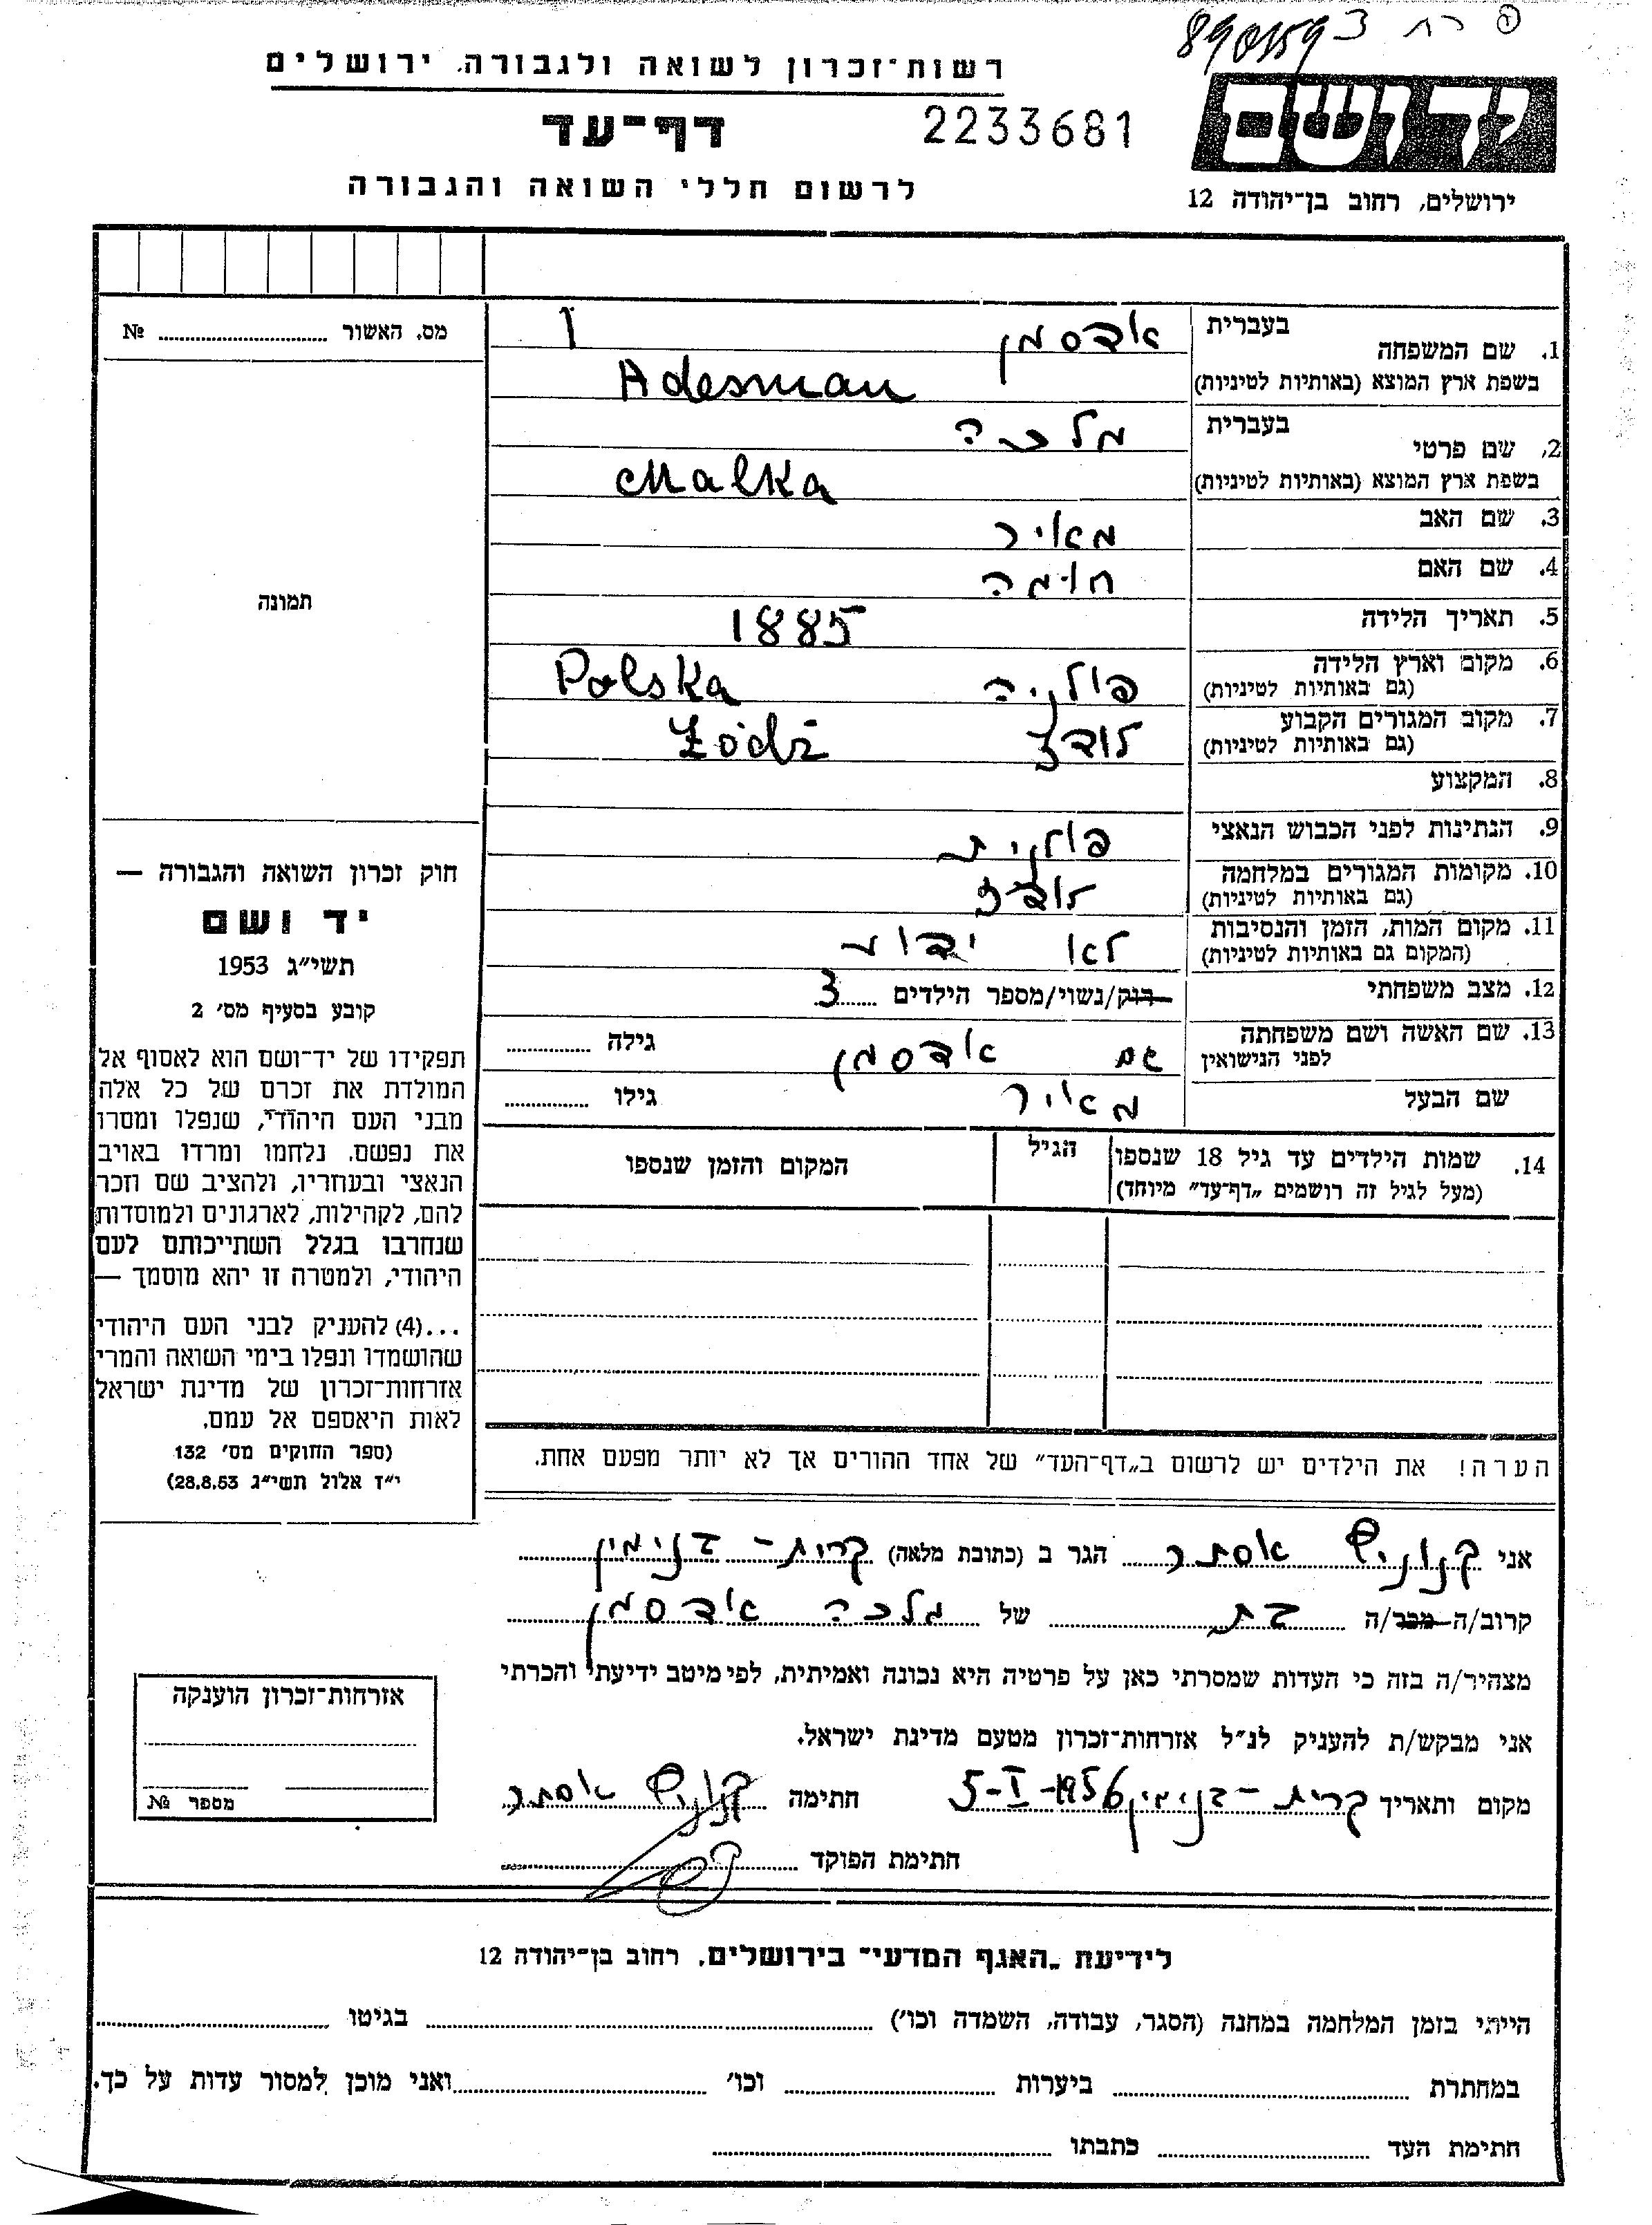 רשות־זכרון לשואה ולגבורה. ירושלים
יד ושם
דף־עד
2233681
לרשום חללי השואה והגבורה
ירושלים, רחוב בן־יהודה 12
מס. האשור № 
תמונה
1. שם המשפחה בעברית אדסמן
בשפת ארץ המוצא (באותיות לטיניות) Adesman
2. שם פרטי בעברית מלכה
בשפת ארץ המוצא (באותיות לטיניות) Malka
3. שם האב מאיר
4. שם האם
5. תאריך הלידה 1885
6. מקום וארץ הלידה פולניה Polska
(גם באותיות לטיניות)
7. מקום המגורים הקבוע לודז Łódź
(גם באותיות לטיניות)
8. המקצוע
9. הנתינות לפני הכבוש הנאצי פולנית
10. מקומות המגורים במלחמה לודז
(גם באותיות לטיניות)
11. מקום המות, הזמן והנסיבות לא ידוע
(המקום גם באותיות לטיניות)
12. מצב משפחתי רוק/נשוי/מספר הילדים 3
13. שם האשה ושם משפחתה גם אדסמן גילה
לפני הנישואין
שם הבעל מאיר גילו
14. שמות הילדים עד גיל 18 שנספו הגיל המקום והזמן שנספו
(מעל לגיל זה רושמים „דף־עד” מיוחד)
הערה! את הילדים יש לרשום ב„דף־העד” של אחד ההורים אך לא יותר מפעם אחת.
חוק זכרון השואה והגבורה —
יד ושם
תשי״ג 1953
קובע בסעיף מס׳ 2
תפקידו של יד־ושם הוא לאסוף אל
המולדת את זכרם של כל אלה
מבני העם היהודי, שנפלו ומסרו
את נפשם, נלחמו ומרדו באויב
הנאצי ובעוזריו, ולהציב שם וזכר
להם, לקהילות, לארגונים ולמוסדות
שנחרבו בגלל השתייכותם לעם
היהודי, ולמטרה זו יהא מוסמך —
...(4) להעניק לבני העם היהודי
שהושמדו ונפלו בימי השואה והמרי
אזרחות־זכרון של מדינת ישראל
לאות היאספם אל עמם.
(ספר החוקים מס׳ 132
י״ז אלול תשי״ג 28.8.53)
אני אסתר הגר ב (כתובת מלאה) קרית־בנימין
קרוב/ה מכר/ה בת של מלכה אדסמן
מצהיר/ה בזה כי העדות שמסרתי כאן על פרטיה היא נכונה ואמיתית, לפי מיטב ידיעתי והכרתי
אני מבקש/ת להעניק לנ״ל אזרחות־זכרון מטעם מדינת ישראל.
מקום ותאריך קרית־בנימין 5-I-1956 חתימה אסתר
חתימת הפוקד
אזרחות־זכרון הוענקה
מספר №
לידיעת „האגף המדעי” בירושלים, רחוב בן־יהודה 12
הייתי בזמן המלחמה במחנה (הסגר, עבודה, השמדה וכו׳) בגיטו
במחתרת ביערות וכו׳ ואני מוכן למסור עדות על כך.
חתימת העד כתבתו